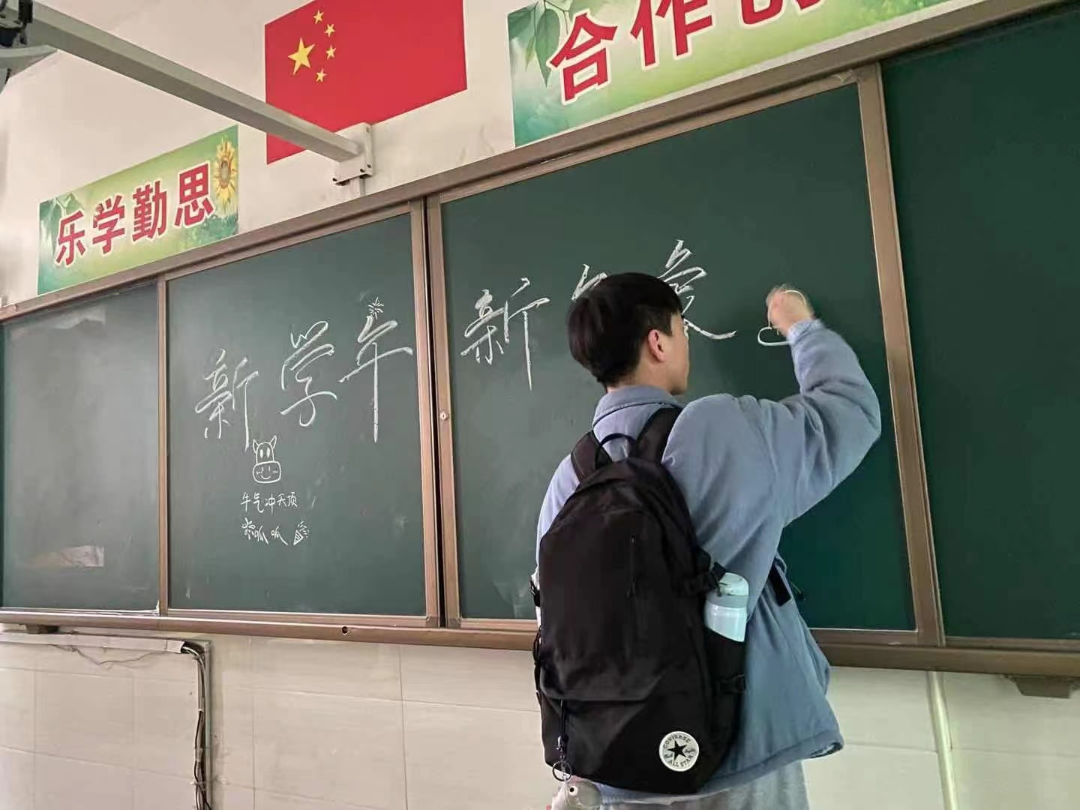 乐学勤思
合作
新学年
新
牛气冲天顶
呱呱
CONVERSE
ALL STAR